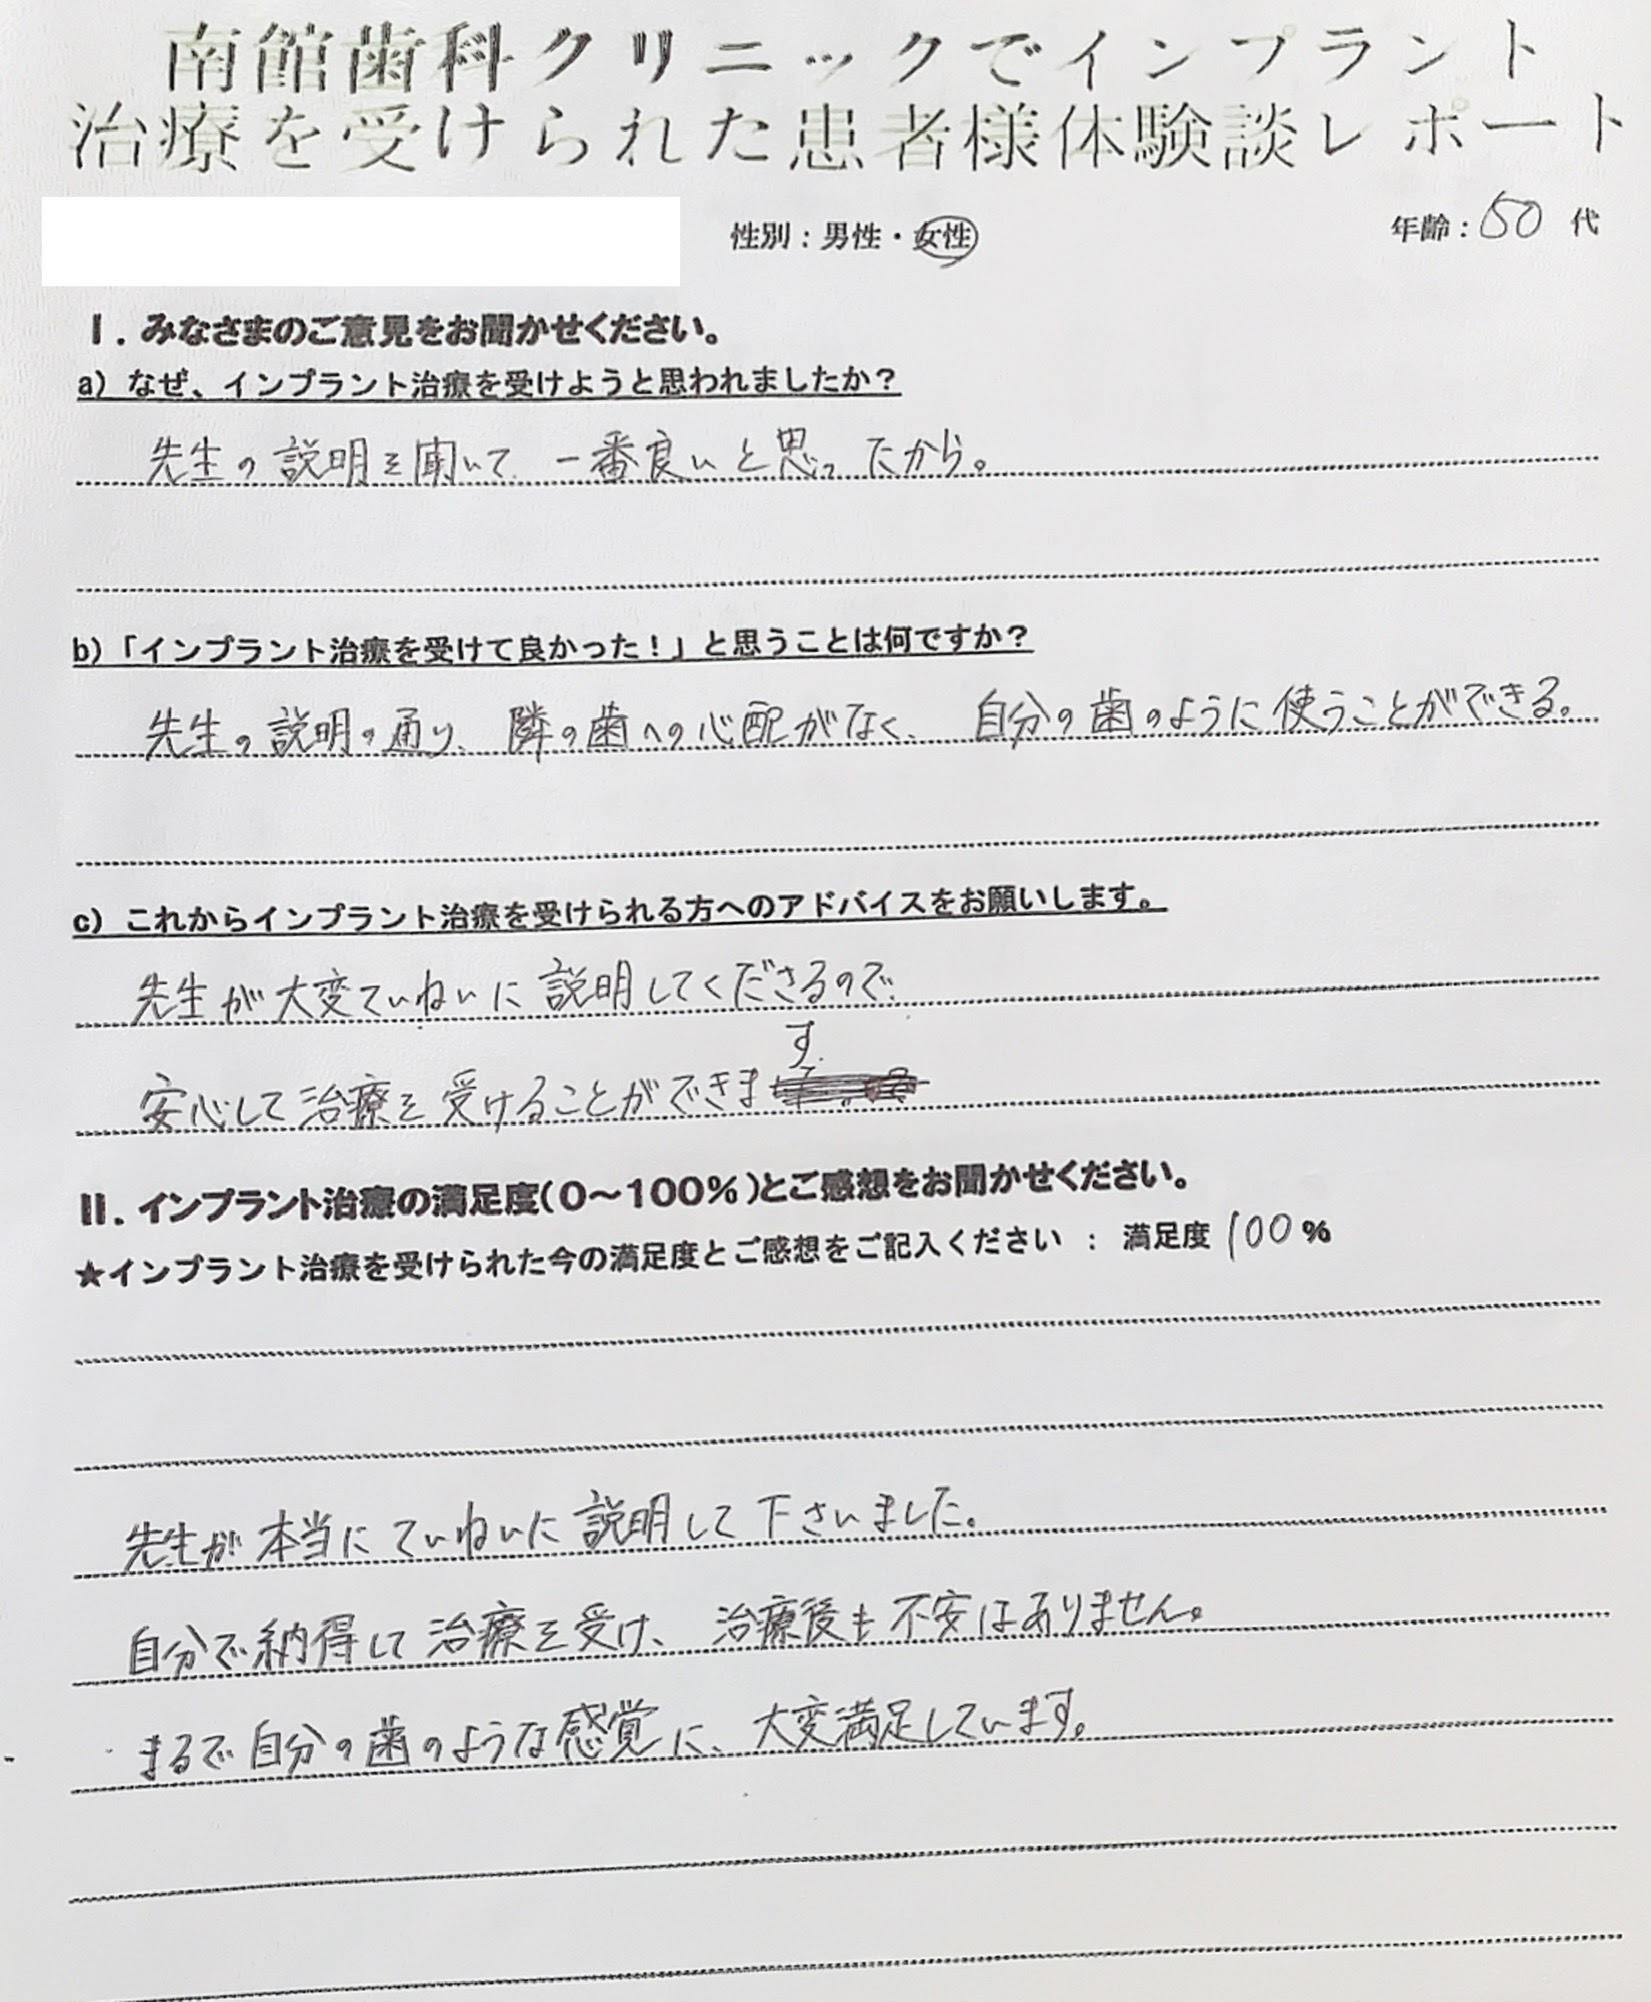 南館歯科クリニックでインプラント
治療を受けられた患者様体験談レポート
性別：男性・女性 年齢：50代
Ⅰ．みなさまのご意見をお聞かせください。
a）なぜ、インプラント治療を受けようと思われましたか？
先生の説明を聞いて、一番良いと思ったから。
b）「インプラント治療を受けて良かった！」と思うことは何ですか？
先生の説明の通り、隣の歯への心配がなく、自分の歯のように使うことができる。
c）これからインプラント治療を受けられる方へのアドバイスをお願いします。
先生が大変ていねいに説明してくださるので、
安心して治療を受けることができます。
Ⅱ．インプラント治療の満足度（0～100％）とご感想をお聞かせください。
★インプラント治療を受けられた今の満足度とご感想をご記入ください ： 満足度 100％
先生が本当にていねいに説明して下さいました。
自分で納得して治療を受け、治療後も不安はありません。
まるで自分の歯のような感覚に、大変満足しています。